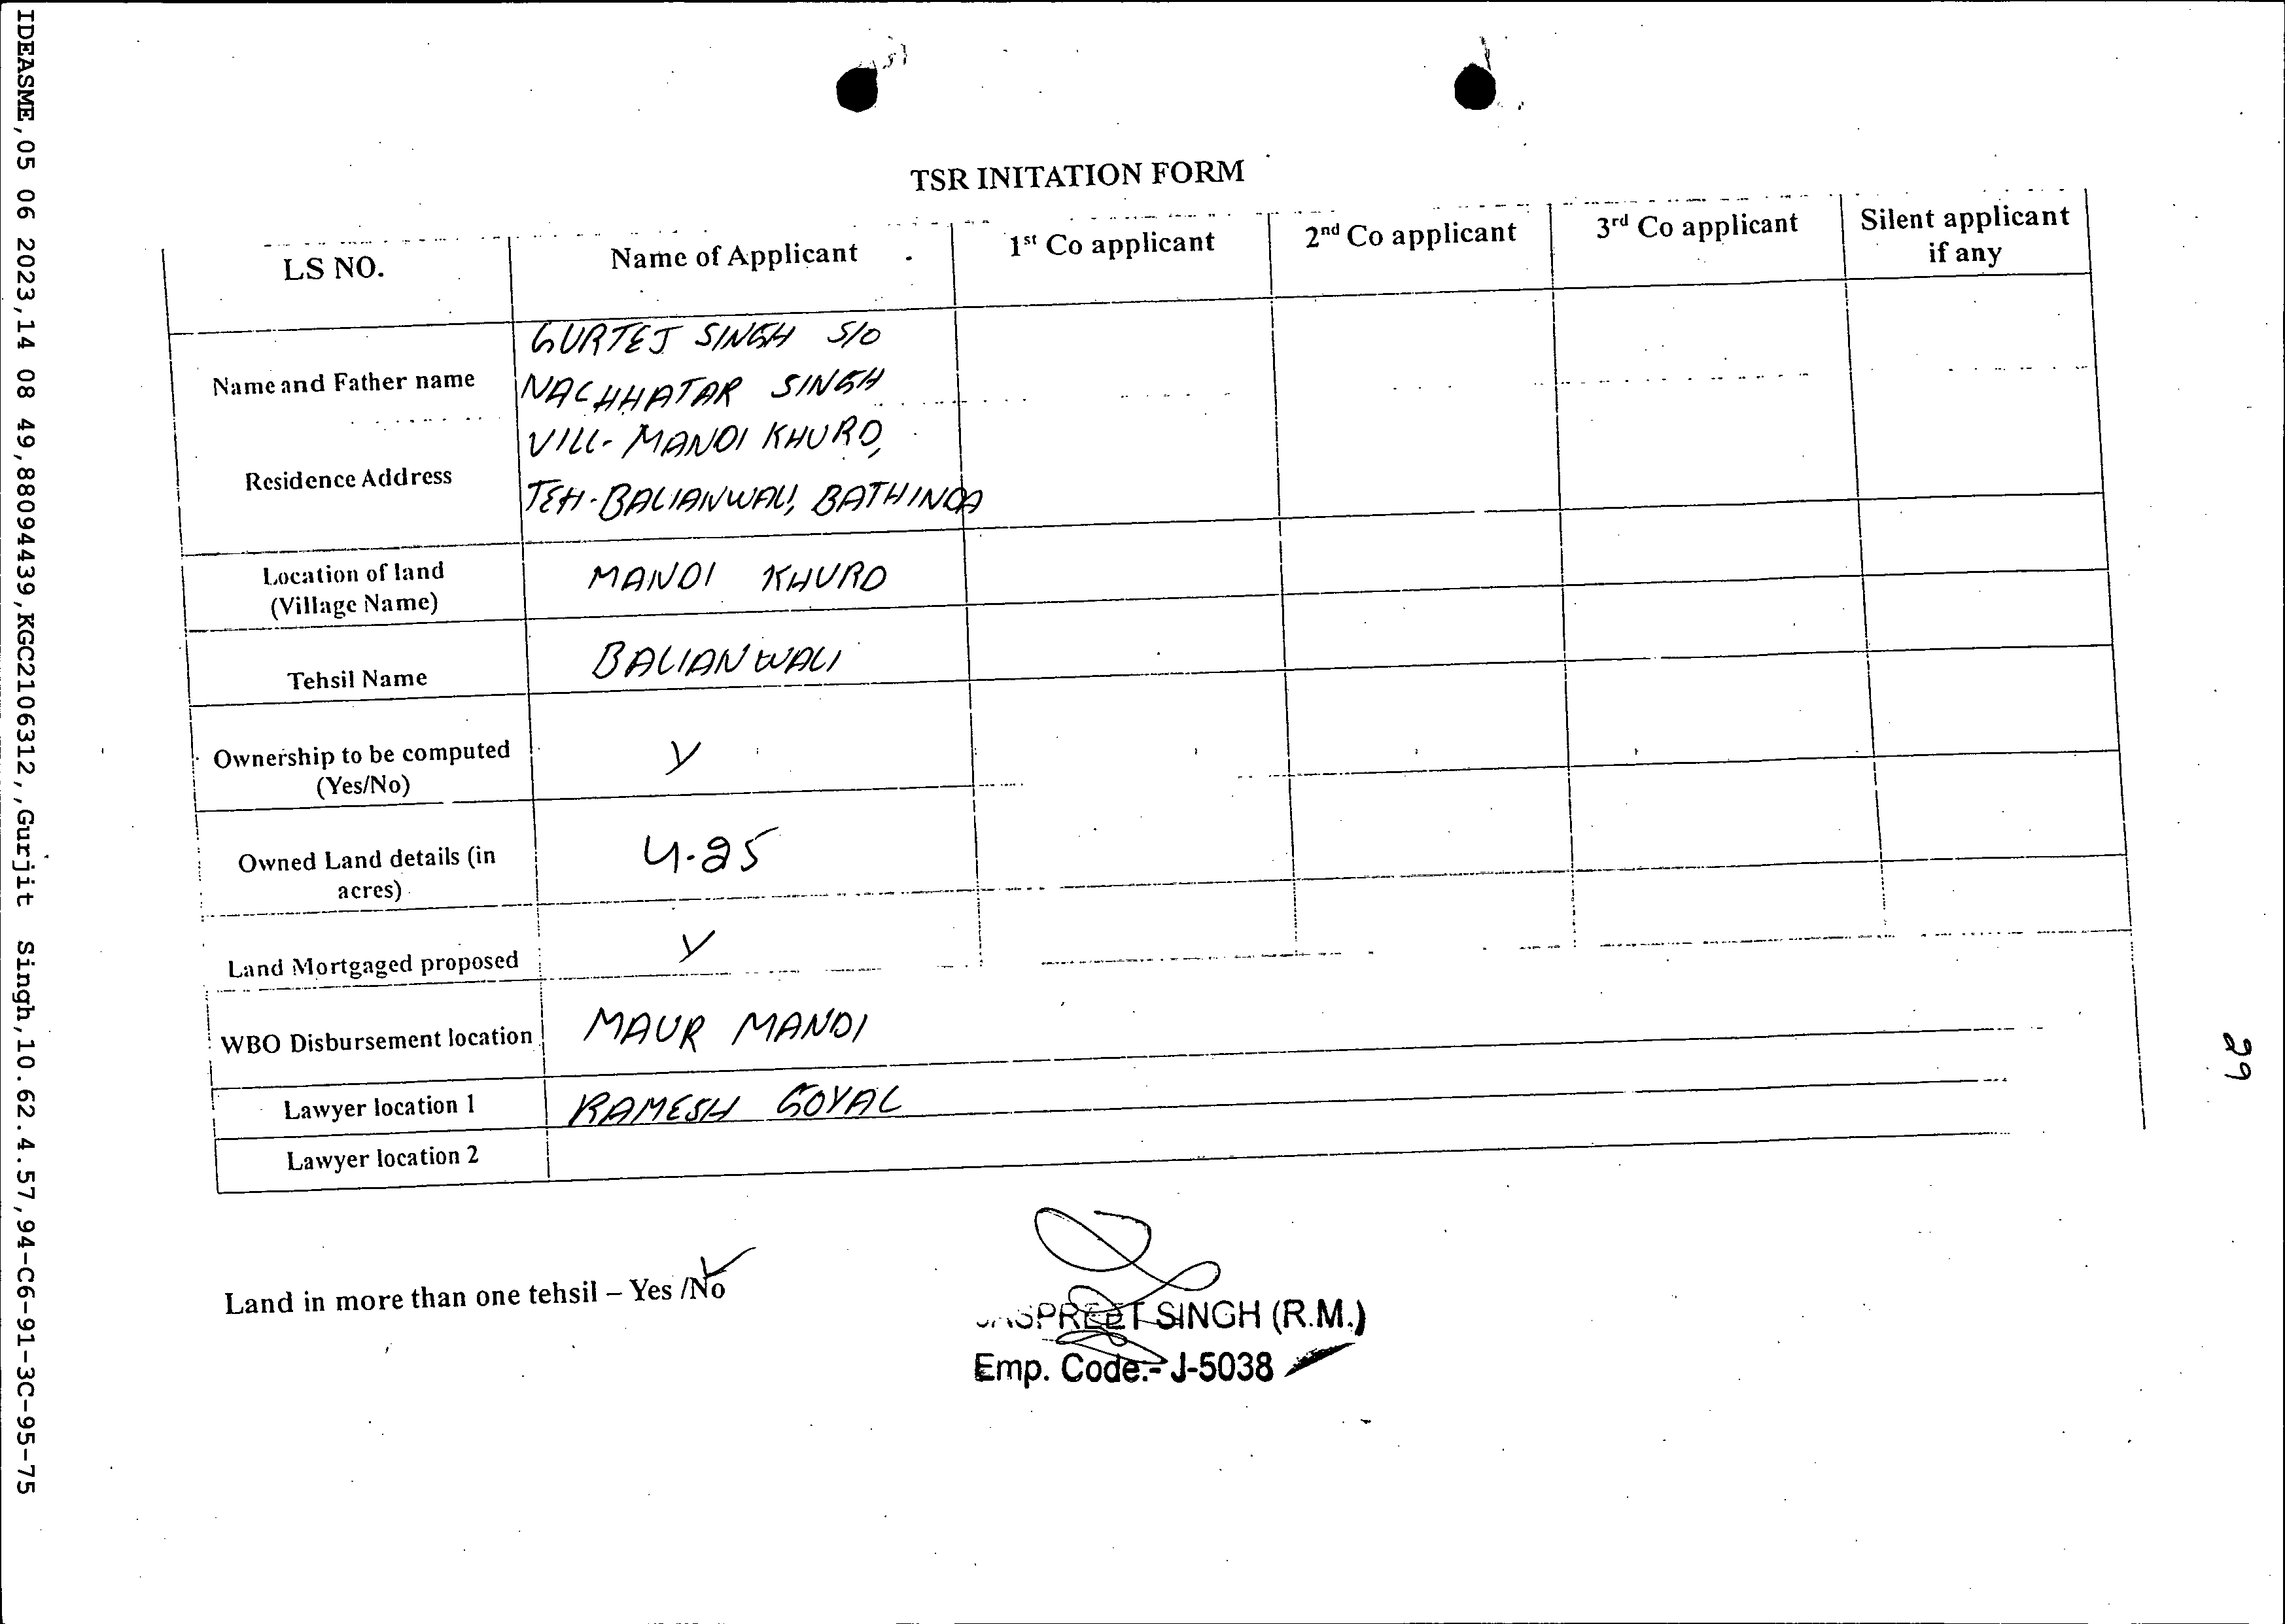 IDEASME,05 06 2023,14 08 49,88094439,KGC2106312,,Gurjit Singh,10.62.4.57,94-C6-91-3C-95-75
TSR INITATION FORM
LS NO. Name of Applicant 1st Co applicant 2nd Co applicant 3rd Co applicant Silent applicant
if any
GURTEJ SINGH S/O
Name and Father name NACHHATAR SINGH
VILL- MANDI KHURD,
Residence Address TEH-BALIANWALI, BATHINDA
Location of land
(Village Name) MANDI KHURD
Tehsil Name BALIANWALI
Ownership to be computed
(Yes/No) Y
Owned Land details (in
acres) 4.25
Land Mortgaged proposed Y
WBO Disbursement location MAUR MANDI
Lawyer location 1 RAMESH GOYAL
Lawyer location 2
29
Land in more than one tehsil – Yes /No
JASPREET SINGH (R.M.)
Emp. Code:- J-5038